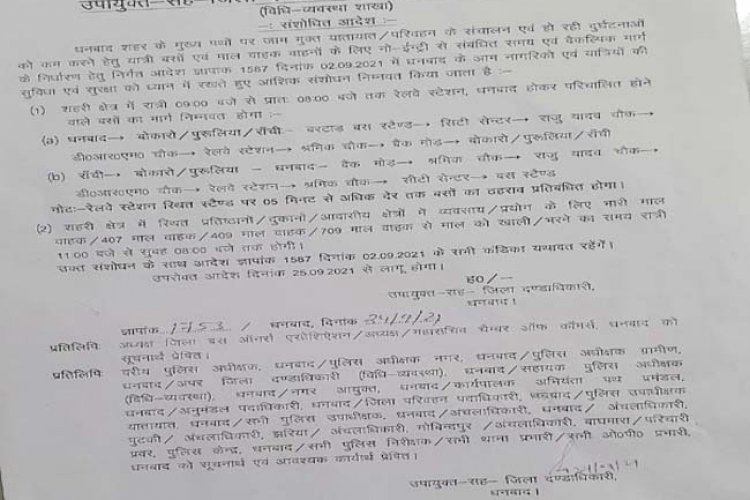 उपायुक्त-सह-जिला
(विधि-व्यवस्था शाखा)
-: संशोधित आदेश :-
धनबाद शहर के मुख्य पथों पर जाम मुक्त यातायात/परिवहन के संचालन एवं हो रही दुर्घटनाओं
को कम करने हेतु यात्री बसों एवं माल वाहक वाहनों के लिए नो-ईन्ट्री से संबंधित समय एवं वैकल्पिक मार्ग
के निर्धारण हेतु निर्गत आदेश ज्ञापांक 1587 दिनांक 02.09.2021 में धनबाद के आम नागरिकों एवं यात्रियों की
सुविधा एवं सुरक्षा को ध्यान में रखते हुए आंशिक संशोधन निम्नवत किया जाता है :-
(1) शहरी क्षेत्र में रात्री 09:00 बजे से प्रातः 08:00 बजे तक रेलवे स्टेशन, धनबाद होकर परिचालित होने
वाले बसों का मार्ग निम्नवत होगा :-
(a) धनबाद→ बोकारो/पुरूलिया/राँची- बरटांड़ बस स्टैण्ड→ सिटी सेन्टर→ राजु यादव चौक→
डी०आर०एम० चौक→ रेलवे स्टेशन→ श्रमिक चौक→ बैंक मोड़→ बोकारो/पुरूलिया/राँची
(b) राँची→ बोकारो/पुरूलिया - धनबाद- बैंक मोड़→ श्रमिक चौक→ राजु यादव चौक→
डी०आर०एम० चौक→ रेलवे स्टेशन→ श्रमिक चौक→ सीटी सेन्टर→ बस स्टैण्ड
नोटः-रेलवे स्टेशन स्थित स्टैण्ड पर 05 मिनट से अधिक देर तक बसों का ठहराव प्रतिबंधित होगा।
(2) शहरी क्षेत्र में स्थित प्रतिष्ठानों/दुकानों/आवासीय क्षेत्रों में व्यवसाय/प्रयोग के लिए भारी माल
वाहक/407 माल वाहक/409 माल वाहक/709 माल वाहक से माल को खाली/भरने का समय रात्री
11:00 बजे से सुबह 08:00 बजे तक होगी।
उक्त संशोधन के साथ आदेश ज्ञापांक 1587 दिनांक 02.09.2021 के सभी कंडिका यथावत रहेंगें।
उपरोक्त आदेश दिनांक 25.09.2021 से लागू होगा।
ह०/-
उपायुक्त-सह- जिला दण्डाधिकारी,
धनबाद।
ज्ञापांक 1753 / धनबाद, दिनांक 24/9/21
प्रतिलिपि: अध्यक्ष जिला बस ऑनर्स एसोशिएशन/अध्यक्ष/महासचिव चैम्बर ऑफ कॉमर्स, धनबाद को
सूचनार्थ प्रेषित।
प्रतिलिपि: वरीय पुलिस अधीक्षक, धनबाद/पुलिस अधीक्षक नगर, धनबाद/पुलिस अधीक्षक ग्रामीण,
धनबाद/अपर जिला दण्डाधिकारी (विधि-व्यवस्था), धनबाद/सहायक पुलिस अधीक्षक
(विधि-व्यवस्था), धनबाद/नगर आयुक्त, धनबाद/कार्यपालक अभियंता पथ प्रमंडल,
धनबाद/अनुमंडल पदाधिकारी, धनबाद/जिला परिवहन पदाधिकारी, धनबाद/पुलिस उपाधीक्षक
यातायात, धनबाद/सभी पुलिस उपाधीक्षक, धनबाद/अंचलाधिकारी, धनबाद/ अंचलाधिकारी,
पुटकी/ अंचलाधिकारी, झरिया/ अंचलाधिकारी, गोबिन्दपुर /अंचलाधिकारी, बाघमारा/परिचारी
प्रवर, पुलिस केन्द्र, धनबाद/सभी पुलिस निरीक्षक/सभी थाना प्रभारी/सभी ओ०पी० प्रभारी,
धनबाद को सूचनार्थ एवं आवश्यक कार्यार्थ प्रेषित।
उपायुक्त-सह- जिला दण्डाधिकारी,
धनबाद।